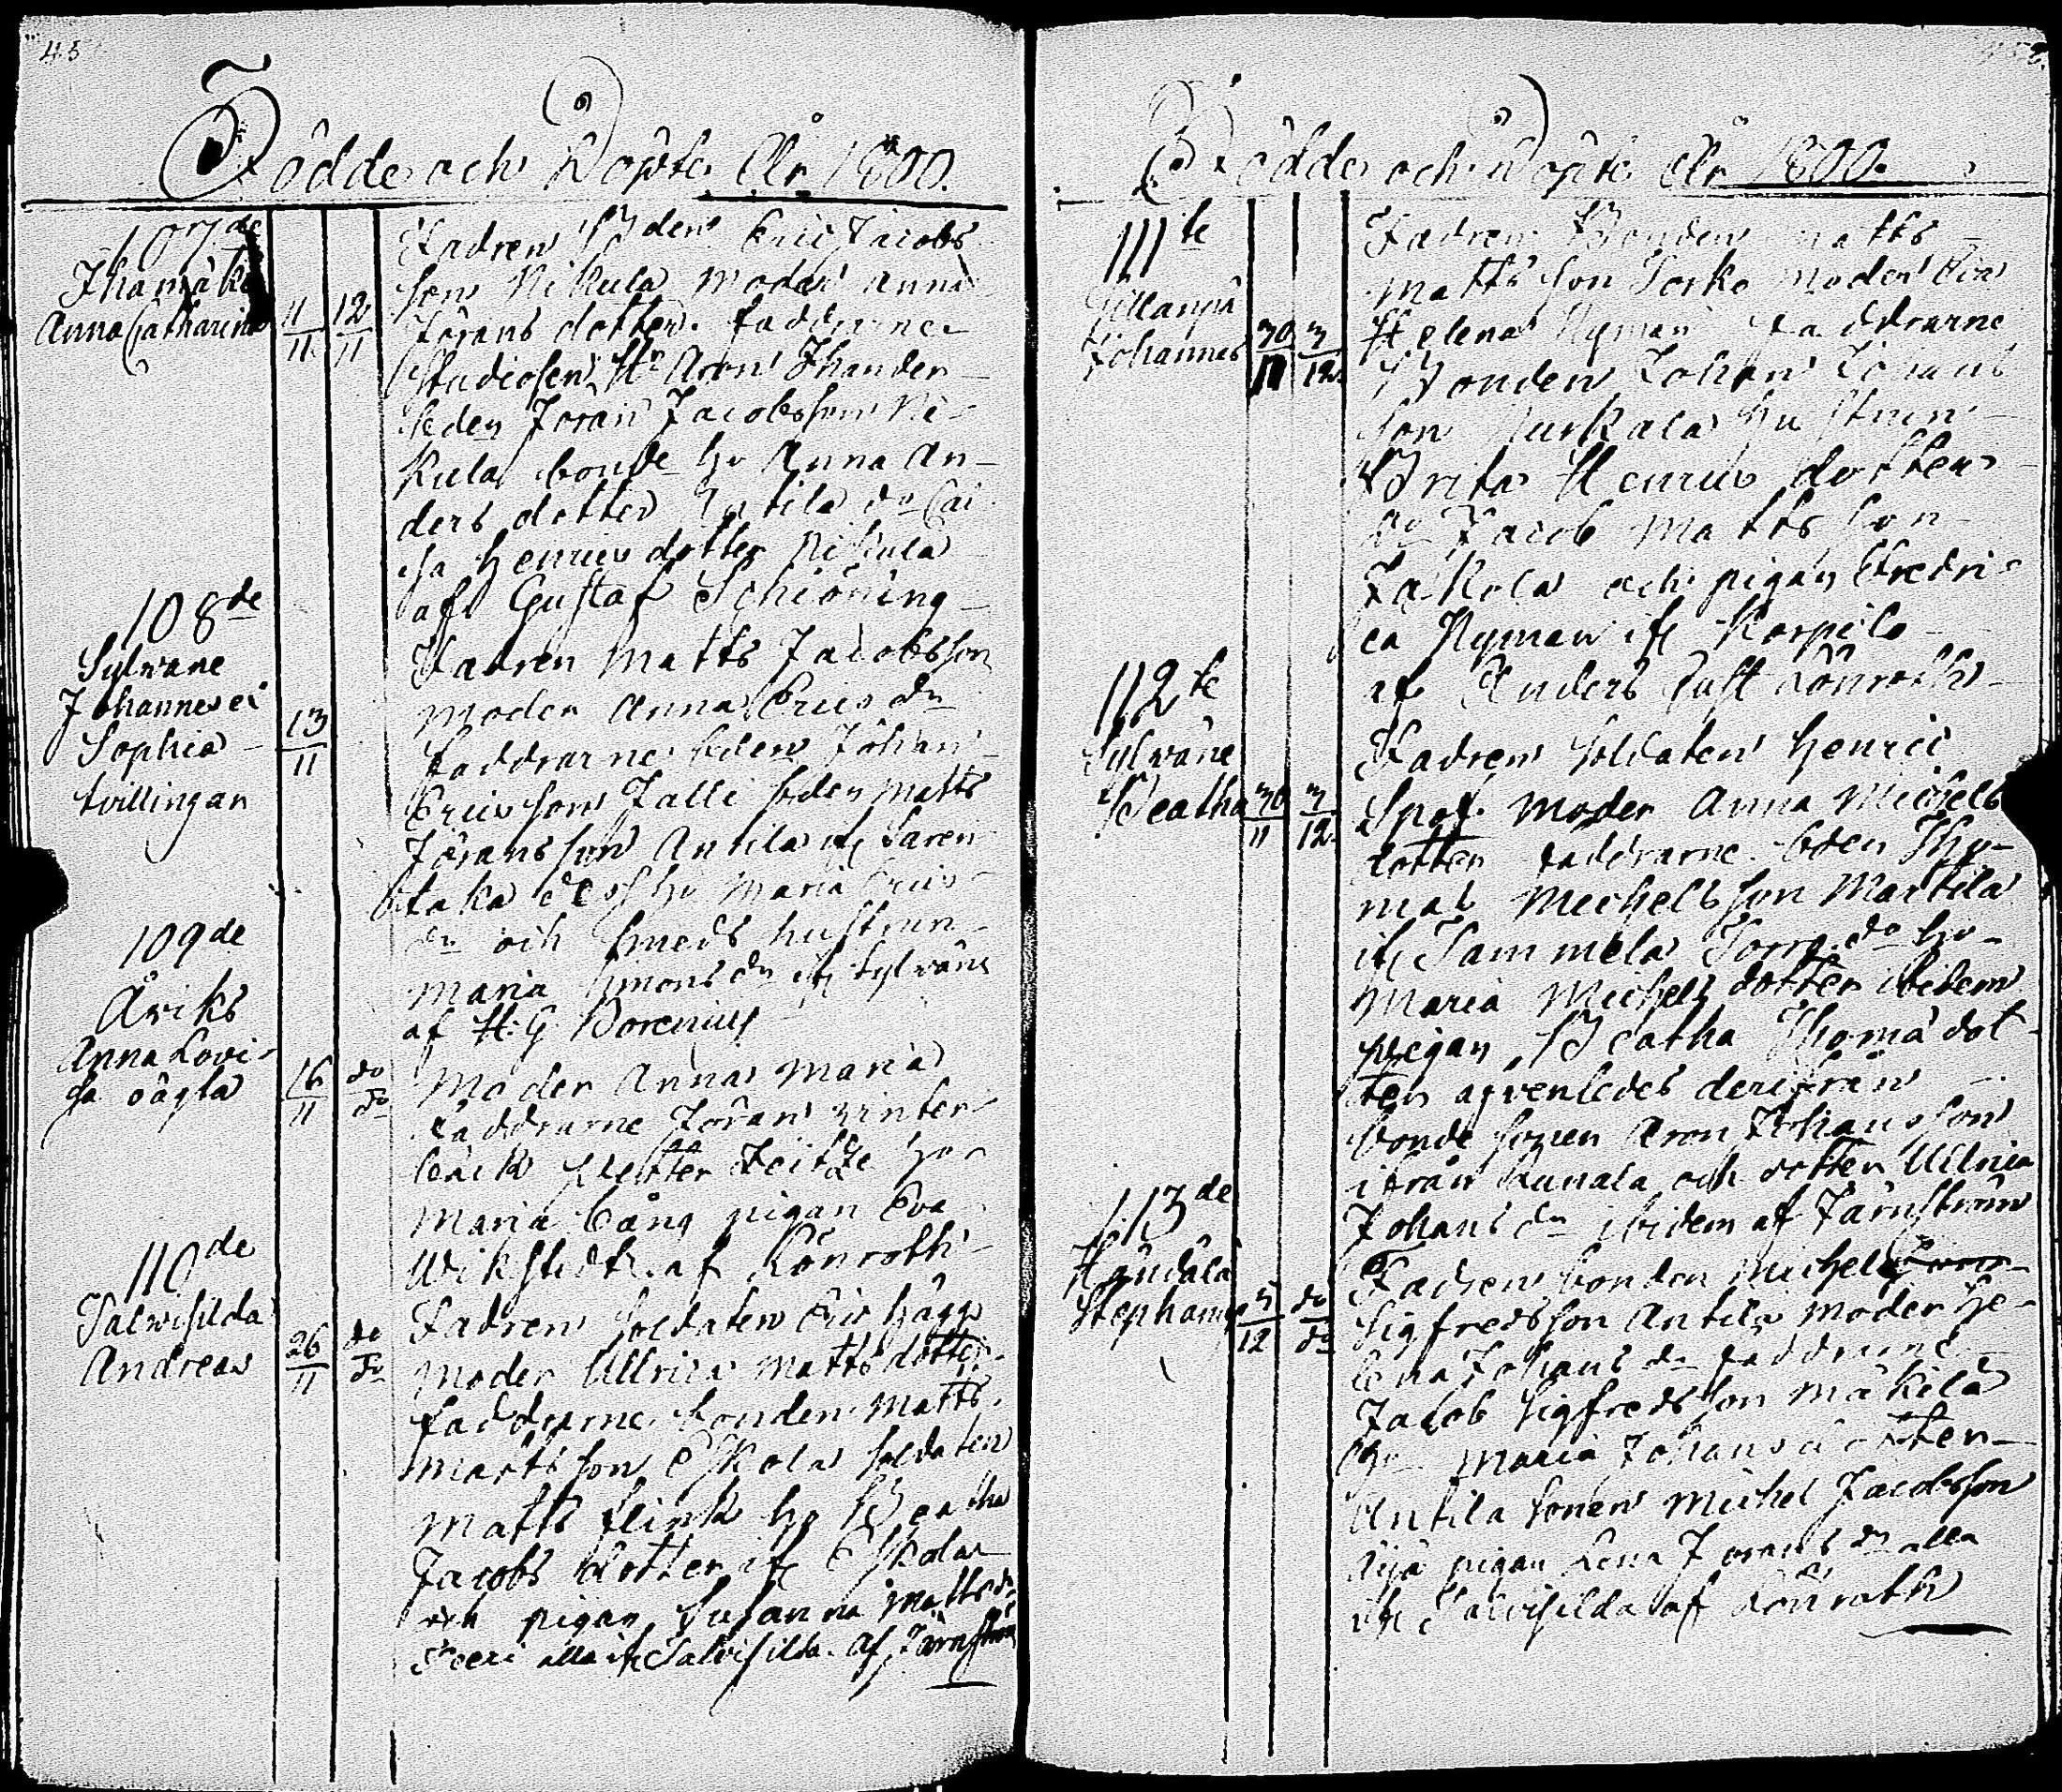 45
Födde och Döpte År 1800.
107de
Ihamäki
Anna Catharina
11/11
12/11
Fadren Bden Eric Jacobs
son Nikula Moder Anna
Jörans dotter. faddrarne
Studiosen Hr Aron Thauden
bden Jöran Jacobsson Ni-
kula bonde hu Anna An-
ders dotter Antila do Cai
sa Henrics dotter Nikula
af Gustaf Schiöning
108de
Sylwäne
Johannes et
Sophia
tvillingar
13/11
Fadren Matts Jacobsson
Moder Anna Erics dr
faddrarne bden Johan
Erics son Jalli bden Matts
Jöransson Antila if Saren
taka dess hu Maria Erics
dr och smeds hustrun
Maria Simons dr if Sylwäne
af H: G: Borenius
109de
Äviks
Anna Lovi-
sa oägta
16/11
do/do
Moder Anna Maria
faddrarne Jöran Winter
beck Petter Zeitze hu
Maria Gång pigan Eva
Wikstedt. af Lönroth
110de
Salwisilda
Andreas
26/11
do/do
Fadren Soldaten Eric Hägg
Moder Ullrica Matts dotter
faddrarne bonden Matts
Matts son Eskola soldaten
Matts flink hu Beatha
Jacobs dotter if Eskola
och pigan Susanna Matts dr
alla if Salvisilda. af Järnström
Födde och Döpte År 1800.
111te
Yllänpä
Johannes
30/11
3/12
Fadren Bonden Matts
Matts son Sorko Moder Eva
Helena Nyman faddrarne
Bonden Johan Johans
son Kurkala hustrun
Brita Henrics dotter
do Jacob Matts son
Jakola och pigan Fredri-
ca Nyman if Korpilo
af Anders Gust Lönroth
112te
Sylwäne
Beatha
30/11
3/12
Fadren Soldaten Henric
Spof Moder Anna Michels
dotter faddrarne bden Tho-
mas Michelsson Marttila
if Sammela Sorro do hu
Maria Michels dotter ibidem
pigan Beatha Thomä dot-
ter äfvenledes derifrån
bonde sonen Aron Johansson
ifrån Kunala och dotter Ullrica
Johans dr ibidem af Järnström
113de
Händälä
Stephanus
3/12
do/do
Fadren bonden Michel
Sigfredsson Antila Moder He-
lena Johans dr faddrarne
Jacob Sigfredsson Mäkilä
hu Maria Johans dotter
Antila sonen Michel Jacobsson
Äijä pigan Lena Jörans dr alla
if Salvisilda af Lönroth